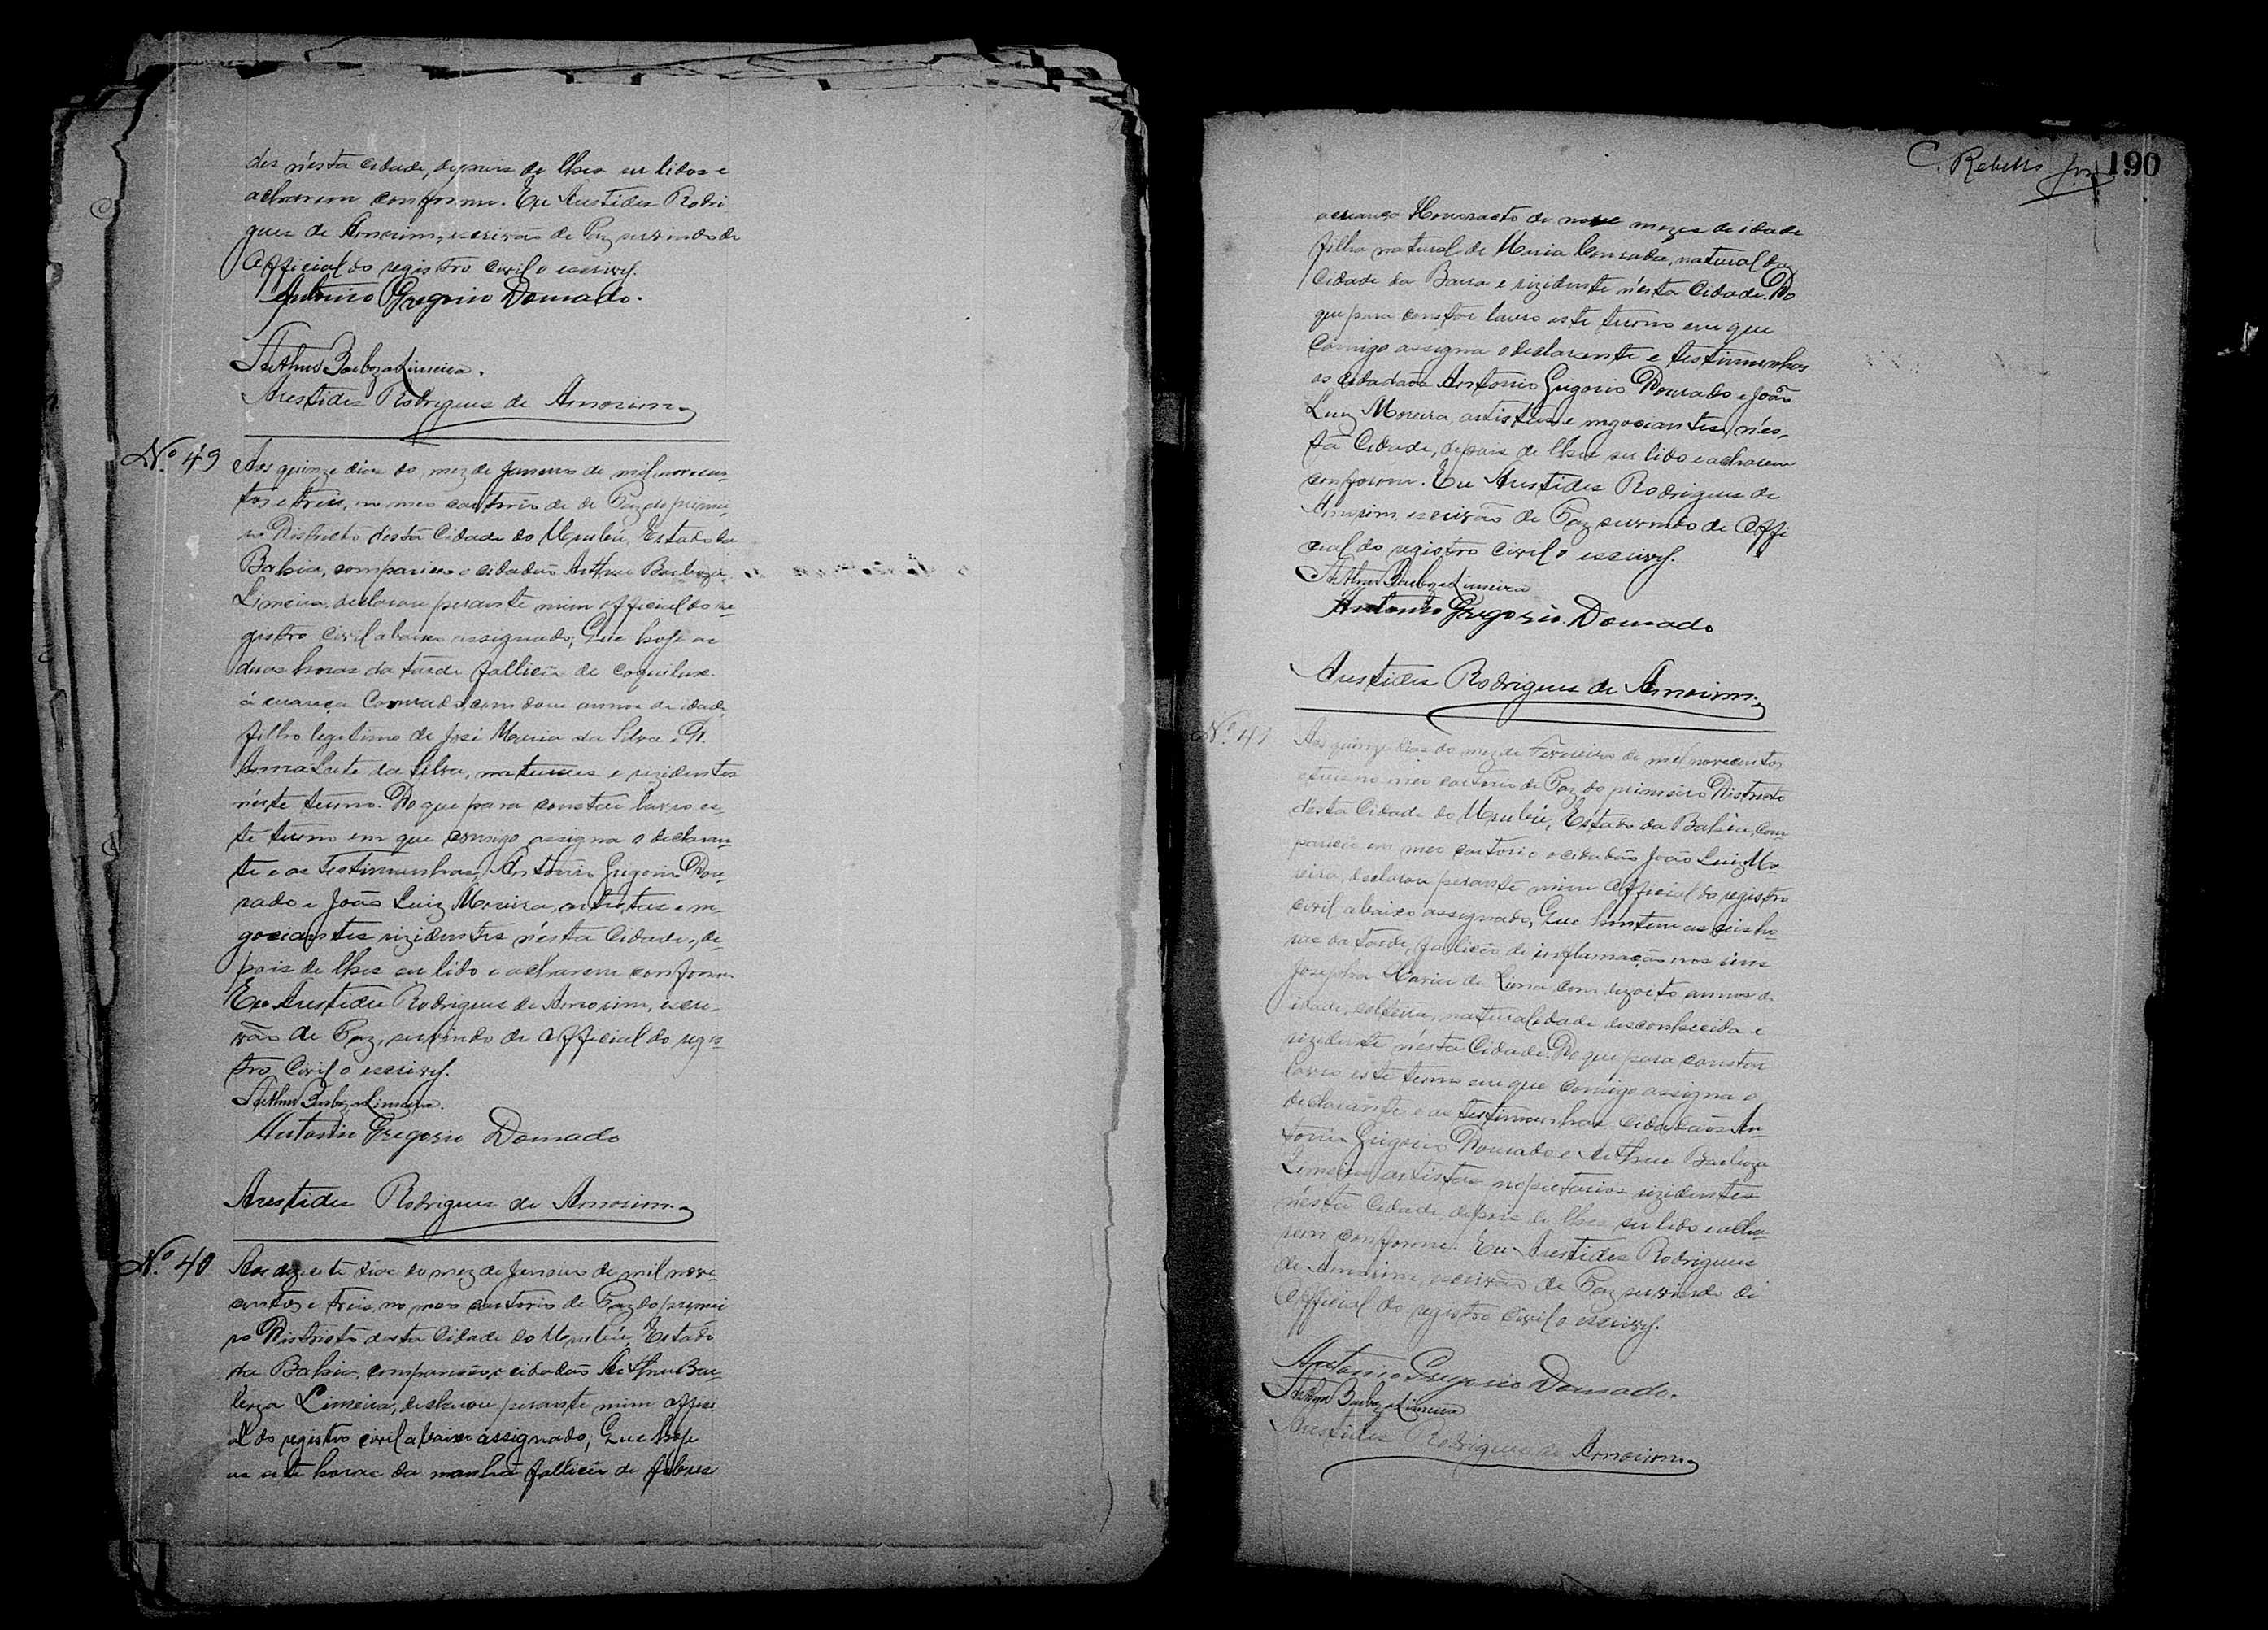 des n'esta cidade, depois de lhes ser lidos e
acharem conforme. Eu Aristides Rodri
gues de Amorim, escrivão de Paz servindo de
Official do registro civil o escrivy.
Antonio Gregorio Dourado.
Arthur Barboza Limeira.
Aristides Rodrigues de Amorim
Nº 49
Aos quinze dias do mez de Janeiro de mil novecen-
tos e treis, no meo cartorio de de Paz do primei-
ro Districto d'esta Cidade do Urubú, Estado da
Bahia, compareceo o cidadão Arthur Barboza
Limeira, declarou perante mim official do re-
gistro civil abaixo assignado; Que hoje as
duas horas da tarde falleceu de coqueluxe
á creança Conrado, com dous annos de idade
filho legitimo de José Maria da Silva e D.
Anna Leite da Silva, naturaes e rizidentes
n'este termo. Do que para constar lavro es-
te termo em que comigo assigna o declaran-
te e as testimunhas, Antonio Grigorio Dou-
rado e João Luiz Moreira, artistas e ne-
gociantes rizidentes n'esta Cidade, de-
pois de lhes ser lido e acharem conforme
Eu Aristides Rodrigues de Amorim, escri-
vão de Paz, servindo de Official do regis-
tro Civil o escrivy.
Arthur Barboza Limeira.
Antonio Gregorio Dourado
Aristides Rodrigues de Amorim
Nº 40
Aos dezesete dias do mez de Janeiro de mil nove-
centos e treis, no meo cartorio de Paz do primei
ro Districto desta Cidade do Urubú, Estado
da Bahia, compareceo o cidadão Arthur Bar-
boza Limeira, declarou perante mim offici
al do registro civil abaixo assignado; Que hoje
as sete horas da manhã falleceu de febres
C. Rebello Jor 190
a creança Honorato de nove mezes de idade
filho natural de Maria Conrada, natural da
Cidade da Barra e rizidente n'esta Cidade. Do
que para constar lavro este termo em que
Comigo assigna o declarante e testimunhas
os cidadãos Antonio Grigorio Dourado e João
Luiz Moreira, artistas e negociantes, n'es-
ta Cidade, depois de lhes ser lido e acharem
conforme. Eu Aristides Rodrigues de
Amorim, escrivão de Paz servindo de Offi
cial do registro Civil o escrivy.
Arthur Barboza Limeira
Antonio Gregorio Dourado
Aristides Rodrigues de Amorim
Nº 41
Aos quinze dias do mez de Fevereiro de mil novecentos
e treis no meo cartorio de Paz do primeiro Districto
d'esta Cidade do Urubú, Estado da Bahia, com
pareceu em meo cartorio o cidadão João Luiz Mo-
reira, declarou perante mim Official do registro
civil abaixo assignado; Que hontem as seis ho-
ras da tarde, falleceo de inflamação nos rins
Josepha Maria de Lima com dezoito annos de
idade, solteira, naturalidade desconhecida e
rizidente n'esta Cidade. Do que para constar
lavro este termo em que comigo assigna o
declarante e as testimunhas Cidadãos An-
tonio Grigorio Dourado e Arthur Barboza
Limeira artistas proprietarios rizidentes
n'esta Cidade, depois de lhes ser lido e acha-
rem conforme. Eu Aristides Rodrigues
de Amorim, escrivão de Paz servindo de
Official do registro Civil o escrivy.
Antonio Gregorio Dourado.
Arthur Barboza Limeira
Aristides Rodrigues de Amorim